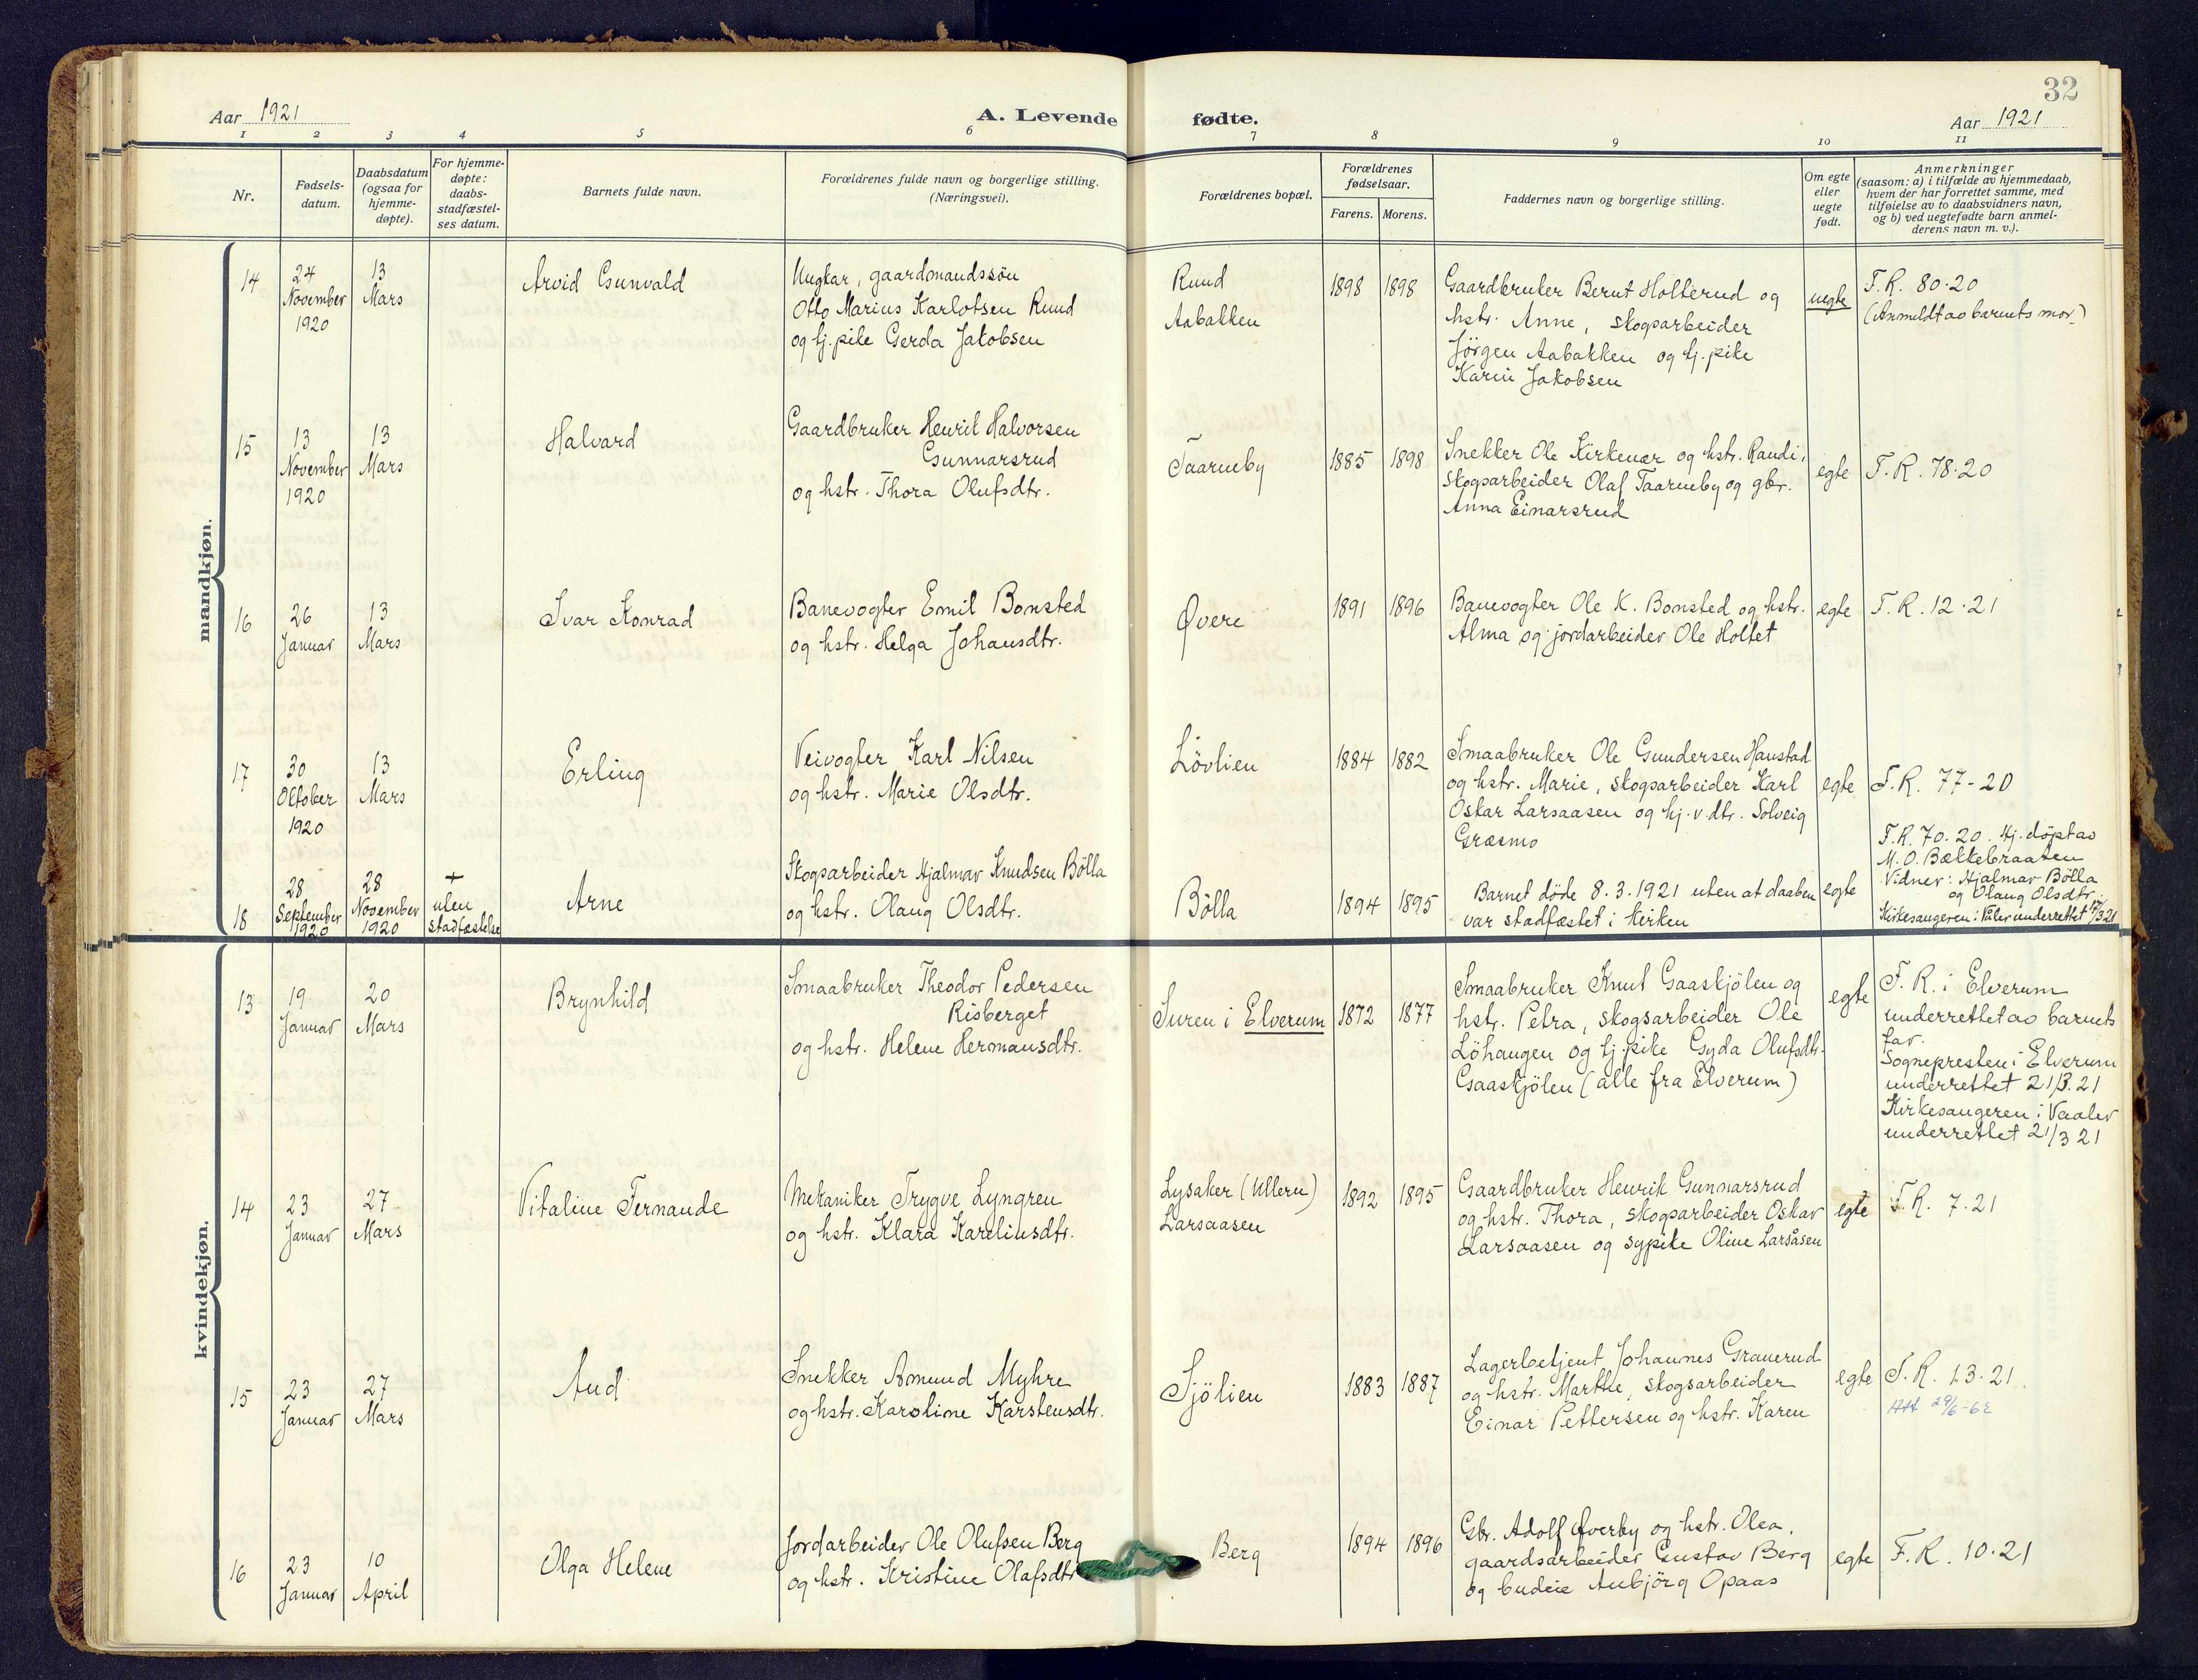 32
Aar 1921
A. Levende
fødte.
Aar 1921
1 2 3 4 5 6 7 8 9 10 11
Nr.
Fødsels-
datum.
Daabsdatum
(ogsaa for
hjemme-
døpte).
For hjemme-
døpte:
daabs-
stadfæstel-
ses datum.
Barnets fulde navn.
Forældrenes fulde navn og borgerlige stilling.
(Næringsvei).
Forældrenes bopæl.
Forældrenes
fødselsaar.
Farens. Morens.
Faddernes navn og borgerlige stilling.
Om egte
eller
uegte
født.
Anmerkninger
(saasom: a) i tilfælde av hjemmedaab,
hvem der har forrettet samme, med
tilføielse av to daabsvidners navn,
og b) ved uegtefødte barn anmel-
derens navn m. v.).
mandkjøn.
14
24
November
1920
13
Mars
Arvid Gunvald
Ungkar, gaardmandssön
Otto Marius Karlotsen Ruud
og tj.pike Gerda Jakobsen
Ruud
Aabakken
1898
1898
Gaardbruker Bernt Holterud og
hstr. Anne, skogsarbeider
Jörgen Aabakken og tj.pike
Karin Jakobsen
uegte
F.R. 80-20
(Anmeldt av barnets mor.)
15
13
November
1920
13
Mars
Halvard
Gaardbruker Henrik Halvorsen
Gunnarsrud
og hstr. Thora Olufsdtr.
Taarneby
1885
1898
Snekker Ole Kirkenær og hstr. Randi,
skogsarbeider Olaf Taarneby og gbr.
Anna Einarsrud
egte
F.R. 78-20
16
26
Januar
13
Mars
Ivar Konrad
Banevogter Emil Bonsted
og hstr. Helga Johansdtr.
Øvere
1891
1896
Banevogter Ole K. Bonsted og hstr.
Alma og jordarbeider Ole Holtet
egte
F.R. 12-21
17
30
Oktober
1920
13
Mars
Erling
Veivogter Karl Nilsen
og hstr. Marie Olsdtr.
Lövlien
1884
1882
Smaabruker Ole Gundersen Haustad
og hstr. Marie, skogsarbeider Karl
Oskar Larsaasen og hj.v.dtr. Solveig
Græsmo
egte
F.R. 77-20
18
28
September
1920
28
November
1920
+
uten
stadfæstelse
Arne
Skogsarbeider Hjalmar Knudsen Bölla
og hstr. Olaug Olsdtr.
Bölla
1894
1895
Barnet döde 8.3.1921 uten at daaben
var stadfæstet i kirken
egte
F.R. 70-20. Hj.döpt av
M.O. Bækkebraaten
Vidner: Hjalmar Bölla
og Olaug Olsdtr.
Kirkesangeren i Våler underrettet 17/3 21
kvindekjøn.
13
19
Januar
20
Mars
Brynhild
Smaabruker Theodor Pedersen
Risberget
og hstr. Helene Hermansdtr.
Suren i Elverum
1872
1877
Smaabruker Knut Gaaskjölen og
hstr. Petra, skogsarbeider Ole
Löhaugen og tj.pike Gyda Olufsdtr.
Gaaskjölen (alle fra Elverum)
egte
F.R. i Elverum
underrettet av barnets
far.
Sognepresten i Elverum
underrettet 21/3.21
Kirkesangeren i Vaaler
underrettet 21/3 21
14
23
Januar
27
Mars
Vitaline Fernande
Mekaniker Trygve Lyngren
og hstr. Klara Kareliusdtr.
Lysaker (Ullern)
Larsaasen
1892
1895
Gaardbruker Henrik Gunnarsrud
og hstr. Thora, skogsarbeider Oskar
Larsaasen og sypike Oline Larsåsen
egte
F.R. 7-21
15
23
Januar
27
Mars
Aud
Snekker Amund Myhre
og hstr. Karoline Karstensdtr.
Sjölien
1883
1887
Lagerbetjent Johannes Granerud
og hstr. Marthe, skogsarbeider
Einar Pettersen og hstr. Karen
egte
F.R. 13-21
Att 29/6-62
16
23
Januar
10
April
Olga Helene
Jordarbeider Ole Olufsen Berg
og hstr. Kristine Olafsdtr
Berg
1894
1896
Gbr. Adolf Øverby og hstr. Olea,
gaardsarbeider Gustav Berg
og budeie Anbjörg Opaas
egte
F.R. 10-21